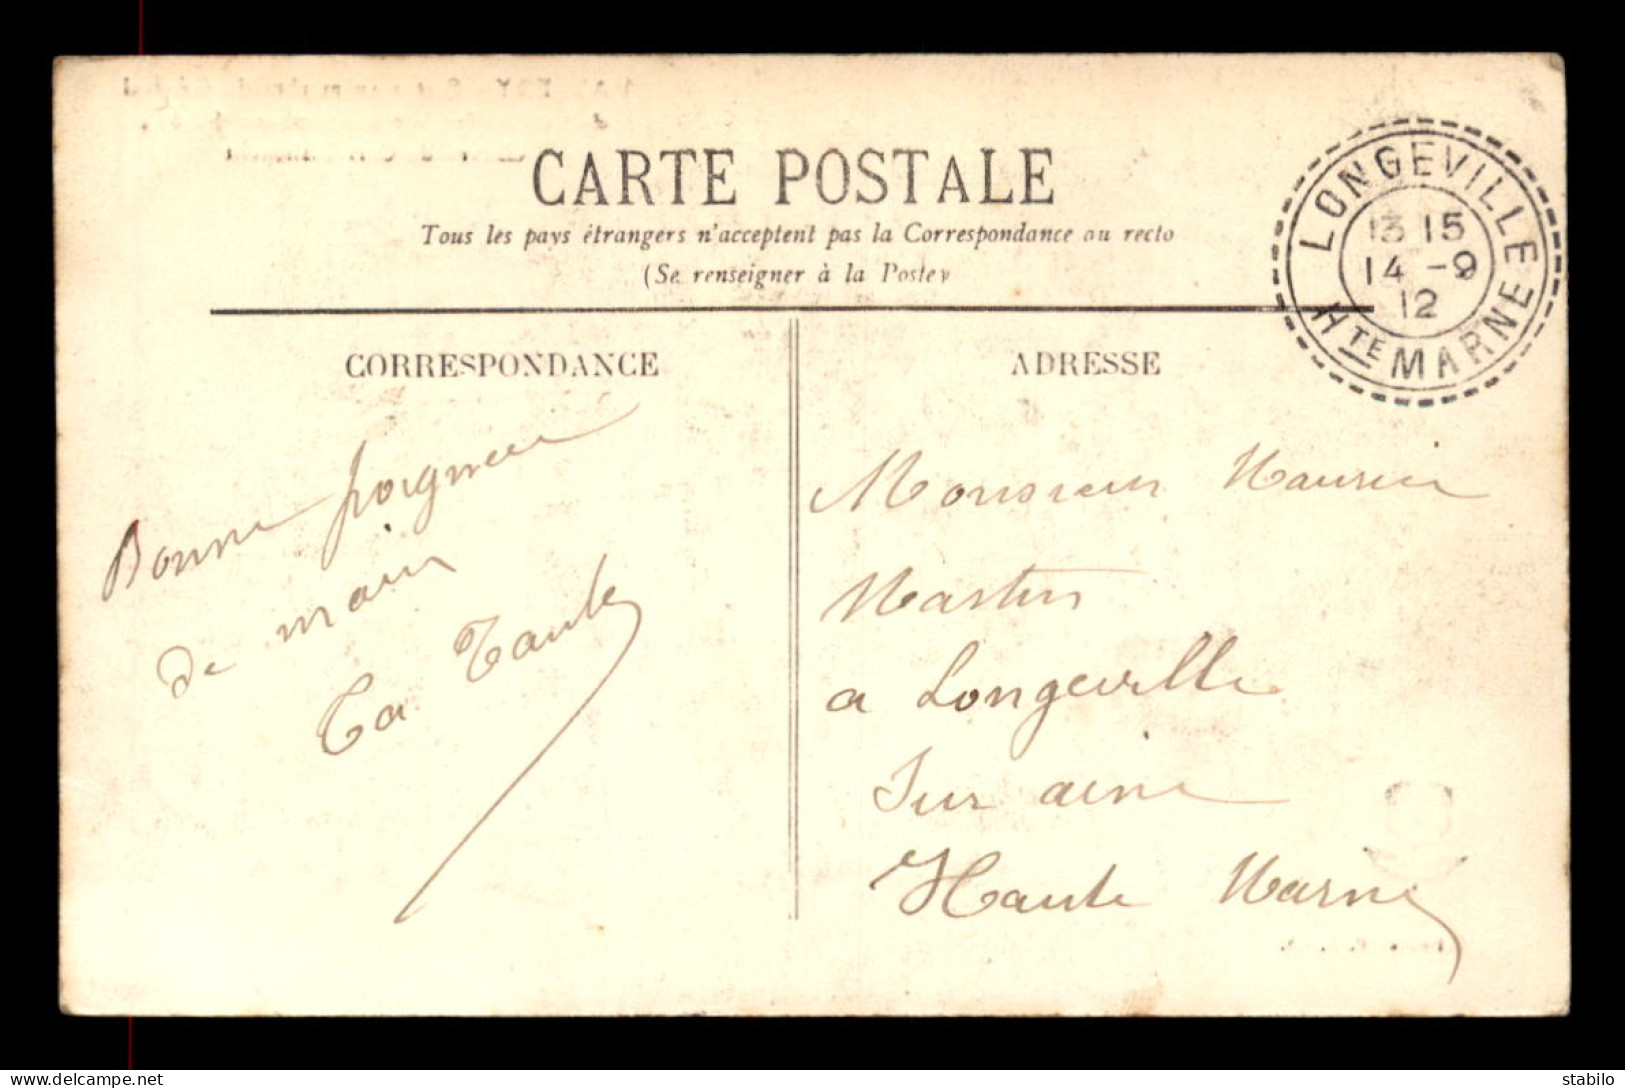 CARTE POSTALE
Tous les pays étrangers n'acceptent pas la Correspondance au recto
(Se renseigner à la Poste)
LONGEVILLE
13 15
14 -9
12
HTE MARNE
CORRESPONDANCE
ADRESSE
Bonne poignée
de main
Ta Tante
Monsieur Maurice
Martin
a Longeville
Sur aine
Haute Marne
delcampe.net
stabilo